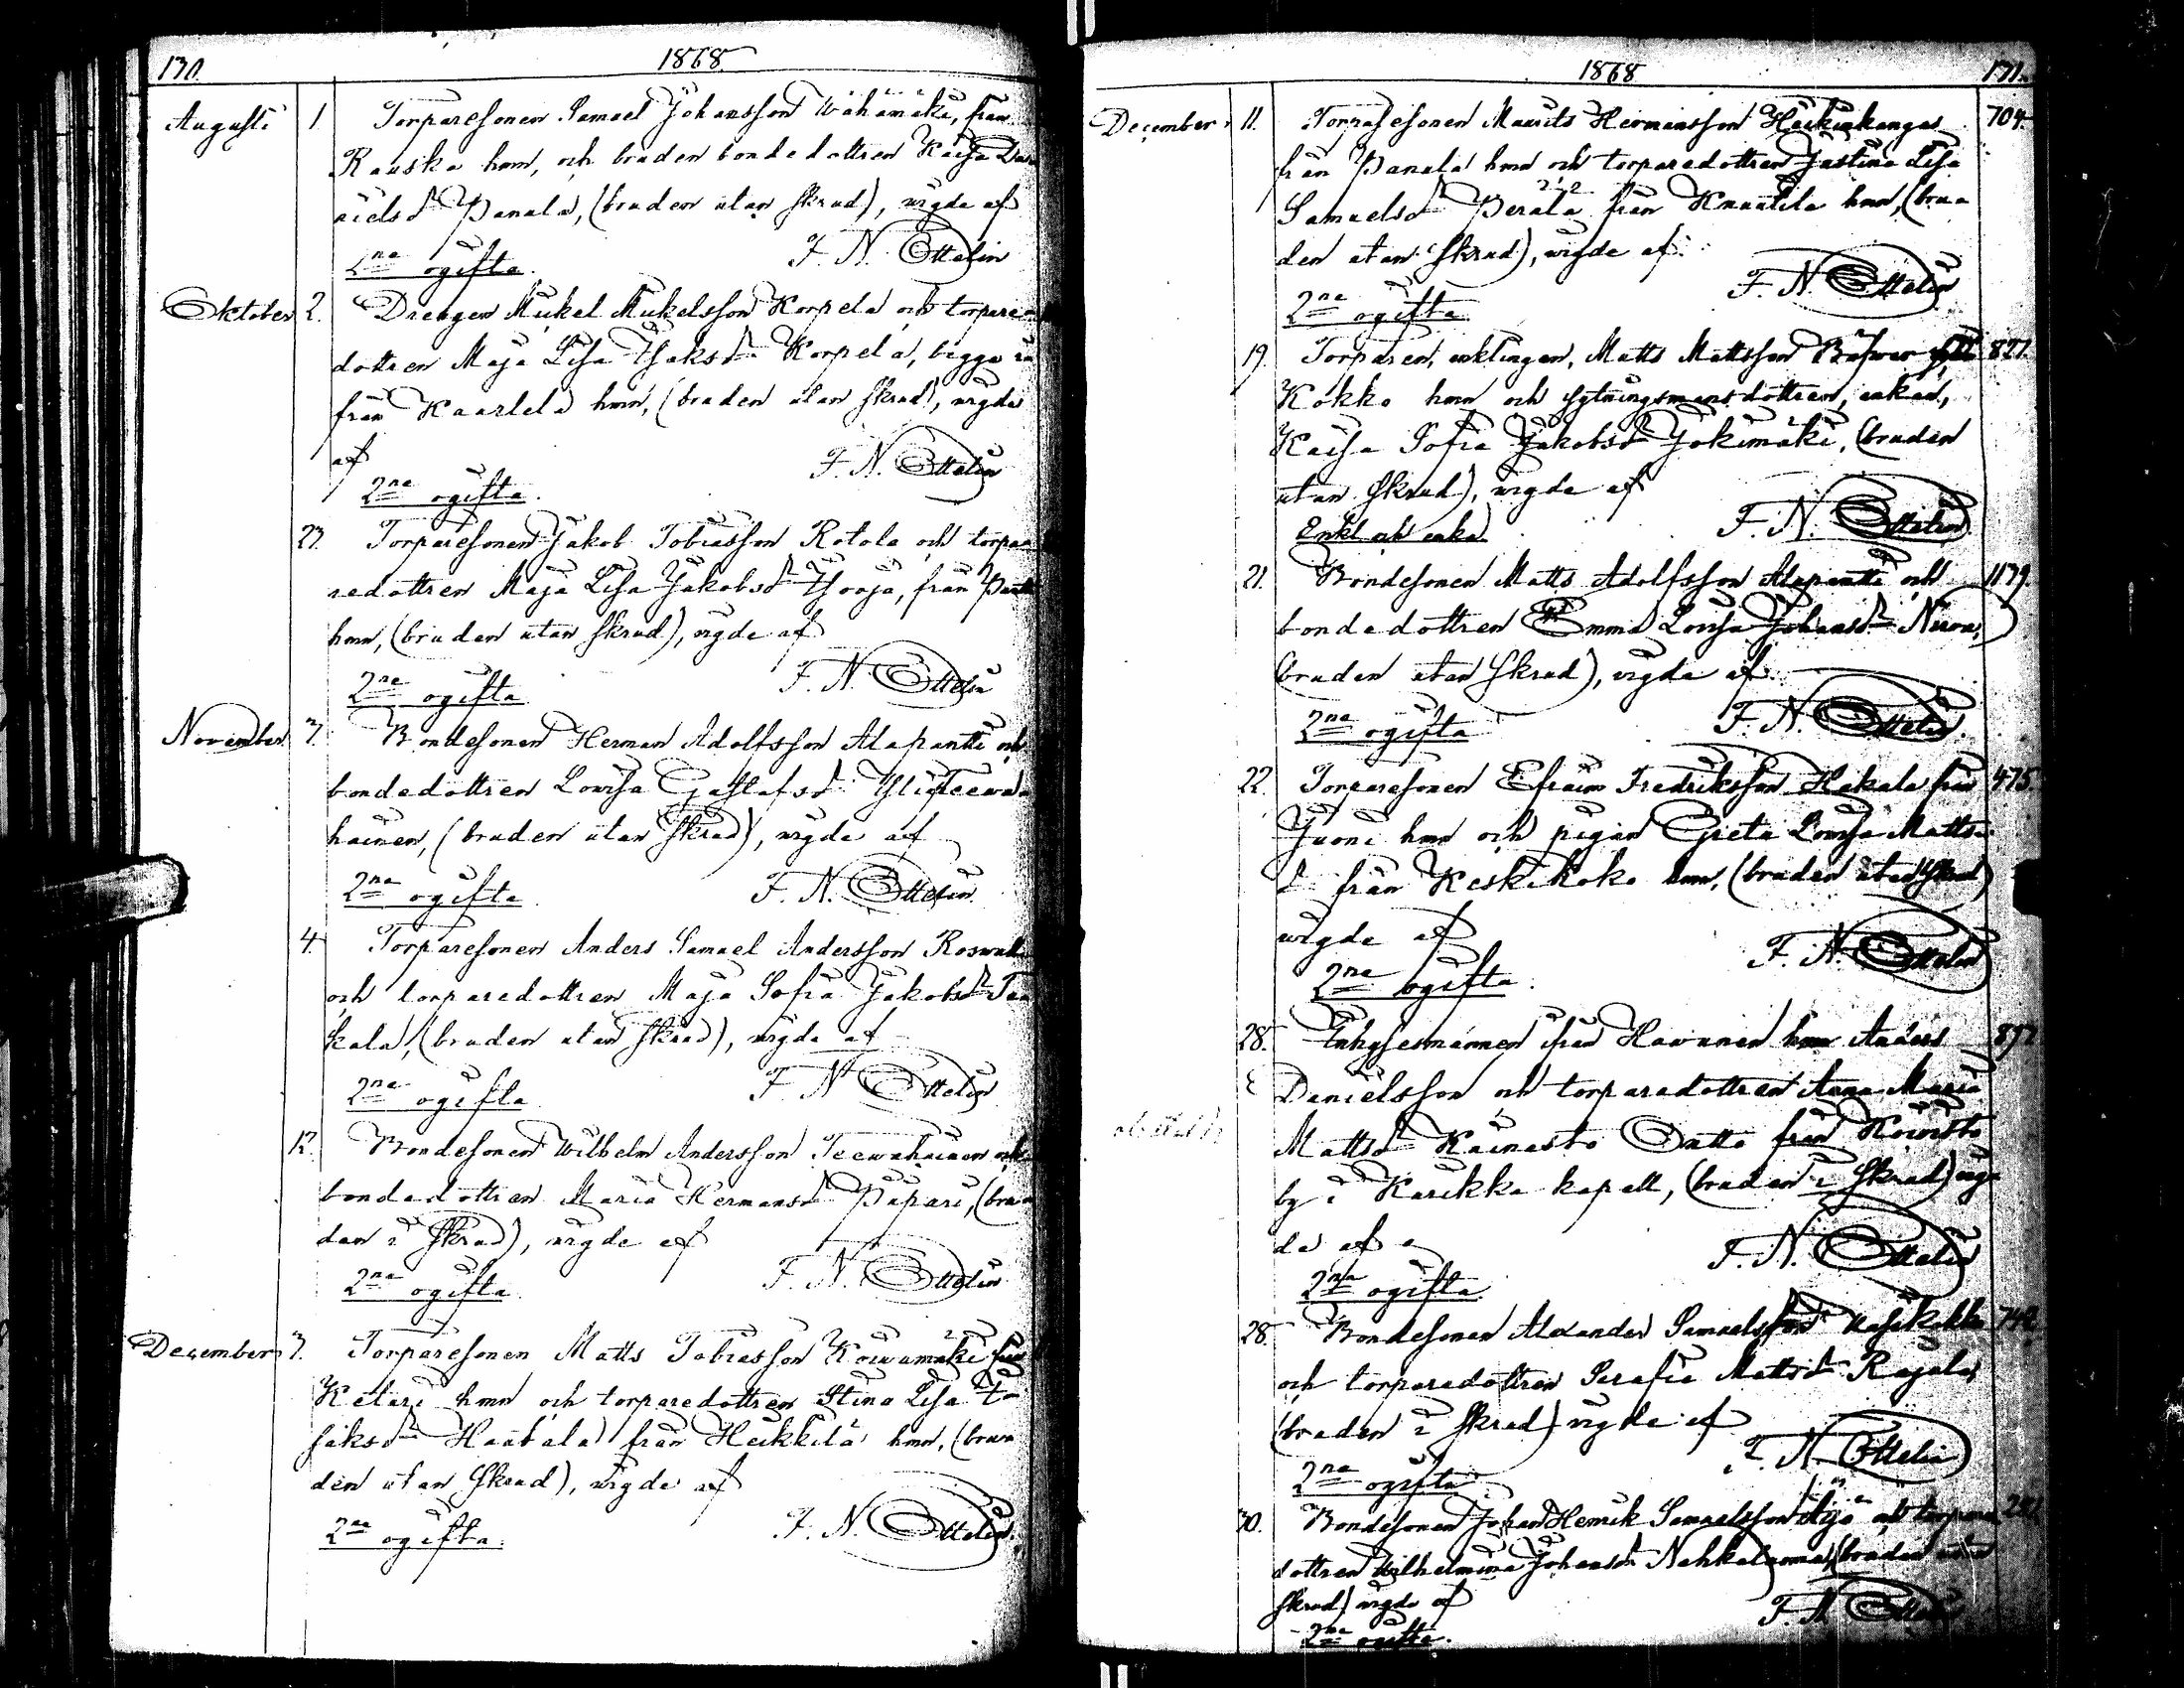 170.
1868.
Augusti 1. Torparesonen Samuel Johansson Wähämäki, från
Rauska hmn, och bruden bondedottren Kaisa Da=
nielsdr Panula, (bruden utan skrud), wigde af
2ne ogifta. F. N. Ottelin
Oktober 2. Drengen Mickel Mickelsson Korpela och torpare=
dottren Maja Lisa Isaksdr Korpela, begge
från Kaarlela hmn, (bruden utan skrud), wigde
af F. N. Ottelin
2ne ogifta.
23. Torparesonen Jakob Tobiasson Rotola och torpa=
redottren Maja Lisa Jakobsdr, från
hmn, (bruden utan skrud), wigde af
2ne ogifta F. N. Ottelin
November 3. Bondesonen Herman Adolfsson Alapantti och
bondedottren Lowisa Gustafsdr Yliteewa=
hainen, (bruden utan skrud), wigde af
2ne ogifta F. N. Ottelin
4. Torparesonen Anders Samuel Andersson
och torparedottren Maja Sofia Jakobsdr
kala, (bruden utan skrud), wigde af
2ne ogifta F. N. Ottelin
12. Bondesonen Wilhelm Andersson Teewahainen och
bondedottren Maria Hermansdr Päpari, (bru=
den i skrud), wigde af
2ne ogifta. F. N. Ottelin
December 3. Torparesonen Matts Tobiasson Koiwumäki från
Ketari hmn och torparedottren Stina Lisa
Isaksdr från Heikkilä hmn, (bru=
den utan skrud), wigde af
2ne ogifta. F. N. Ottelin.
1868
171.
December 11. Torparesonen Maurits Hermansson Heikinkangas 704.
från Panula hmn och torparedottren Justina Lisa
Samuelsdr Perälä från Knuutila hmn, (bru=
den utan skrud), wigde af
2ne ogifta F. N. Ottelin
19. Torparen, enklingen, Matts Mattsson från 827.
Kokko hmn och sytningsmansdottren, enkan,
Kaisa Sofia Jakobsdr Jokimäki, (bruden
utan skrud), wigde af
Enkl och enka F. N. Ottelin
21. Bondesonen Matts Adolfsson Alapantti och 1179.
bondedottren Emma Lowisa Johansdr
(bruden utan skrud), wigde af
2ne ogifta F. N. Ottelin.
22. Torparesonen Efraim Fredriksson Hakala från 475.
Juoni hmn och pigan Greta Lowisa Matts=
dr från Keskikoko hmn, (bruden utan skrud)
wigde af F. N. Ottelin
2ne ogifta.
28. Inhysesmannen från Hawunen hmn Anders
Danielsson och torparedottren Anna Maria
Mattsdr Kainasto från Koiwisto
by i Karikka kapell, (bruden i skrud) wig=
de af F. N. Ottelin
2ne ogifta
28. Bondesonen Alexander Samuelsson 742
och torparedottren Serafia Mattsdr Rajala,
(bruden i skrud) wigde af
2ne ogifta F. N. Ottelin
30. Bondesonen Johan Henrik Samuelsson Äijö och torpare
dottren Wilhelmina Johansdr Nahkaluoma, (bruden utan
skrud) wigde af F. N. Ottelin
2ne ogifta.